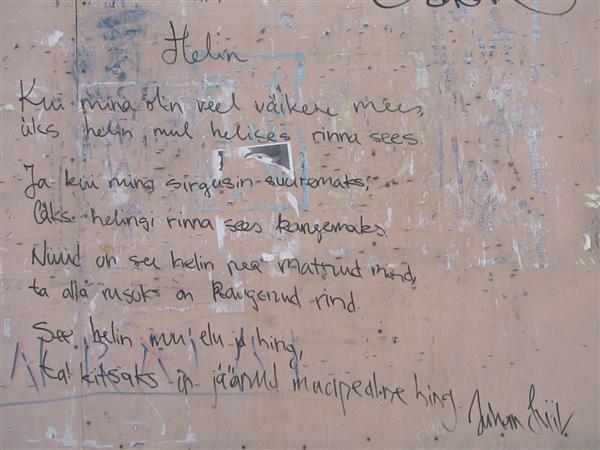 Helin
Kui mina olin veel väikene mees,
üks helin mul helises rinna sees.
Ja kui mina sirgusin suuremaks,
läks helingi rinna sees kangemaks.
Nüüd on see helin pea matnud mind,
ta alla rusuks on kangenud rind.
See helin mu elu ja hing,
tal kitsaks on jäänud maapealne ring.
Juhan Liiv